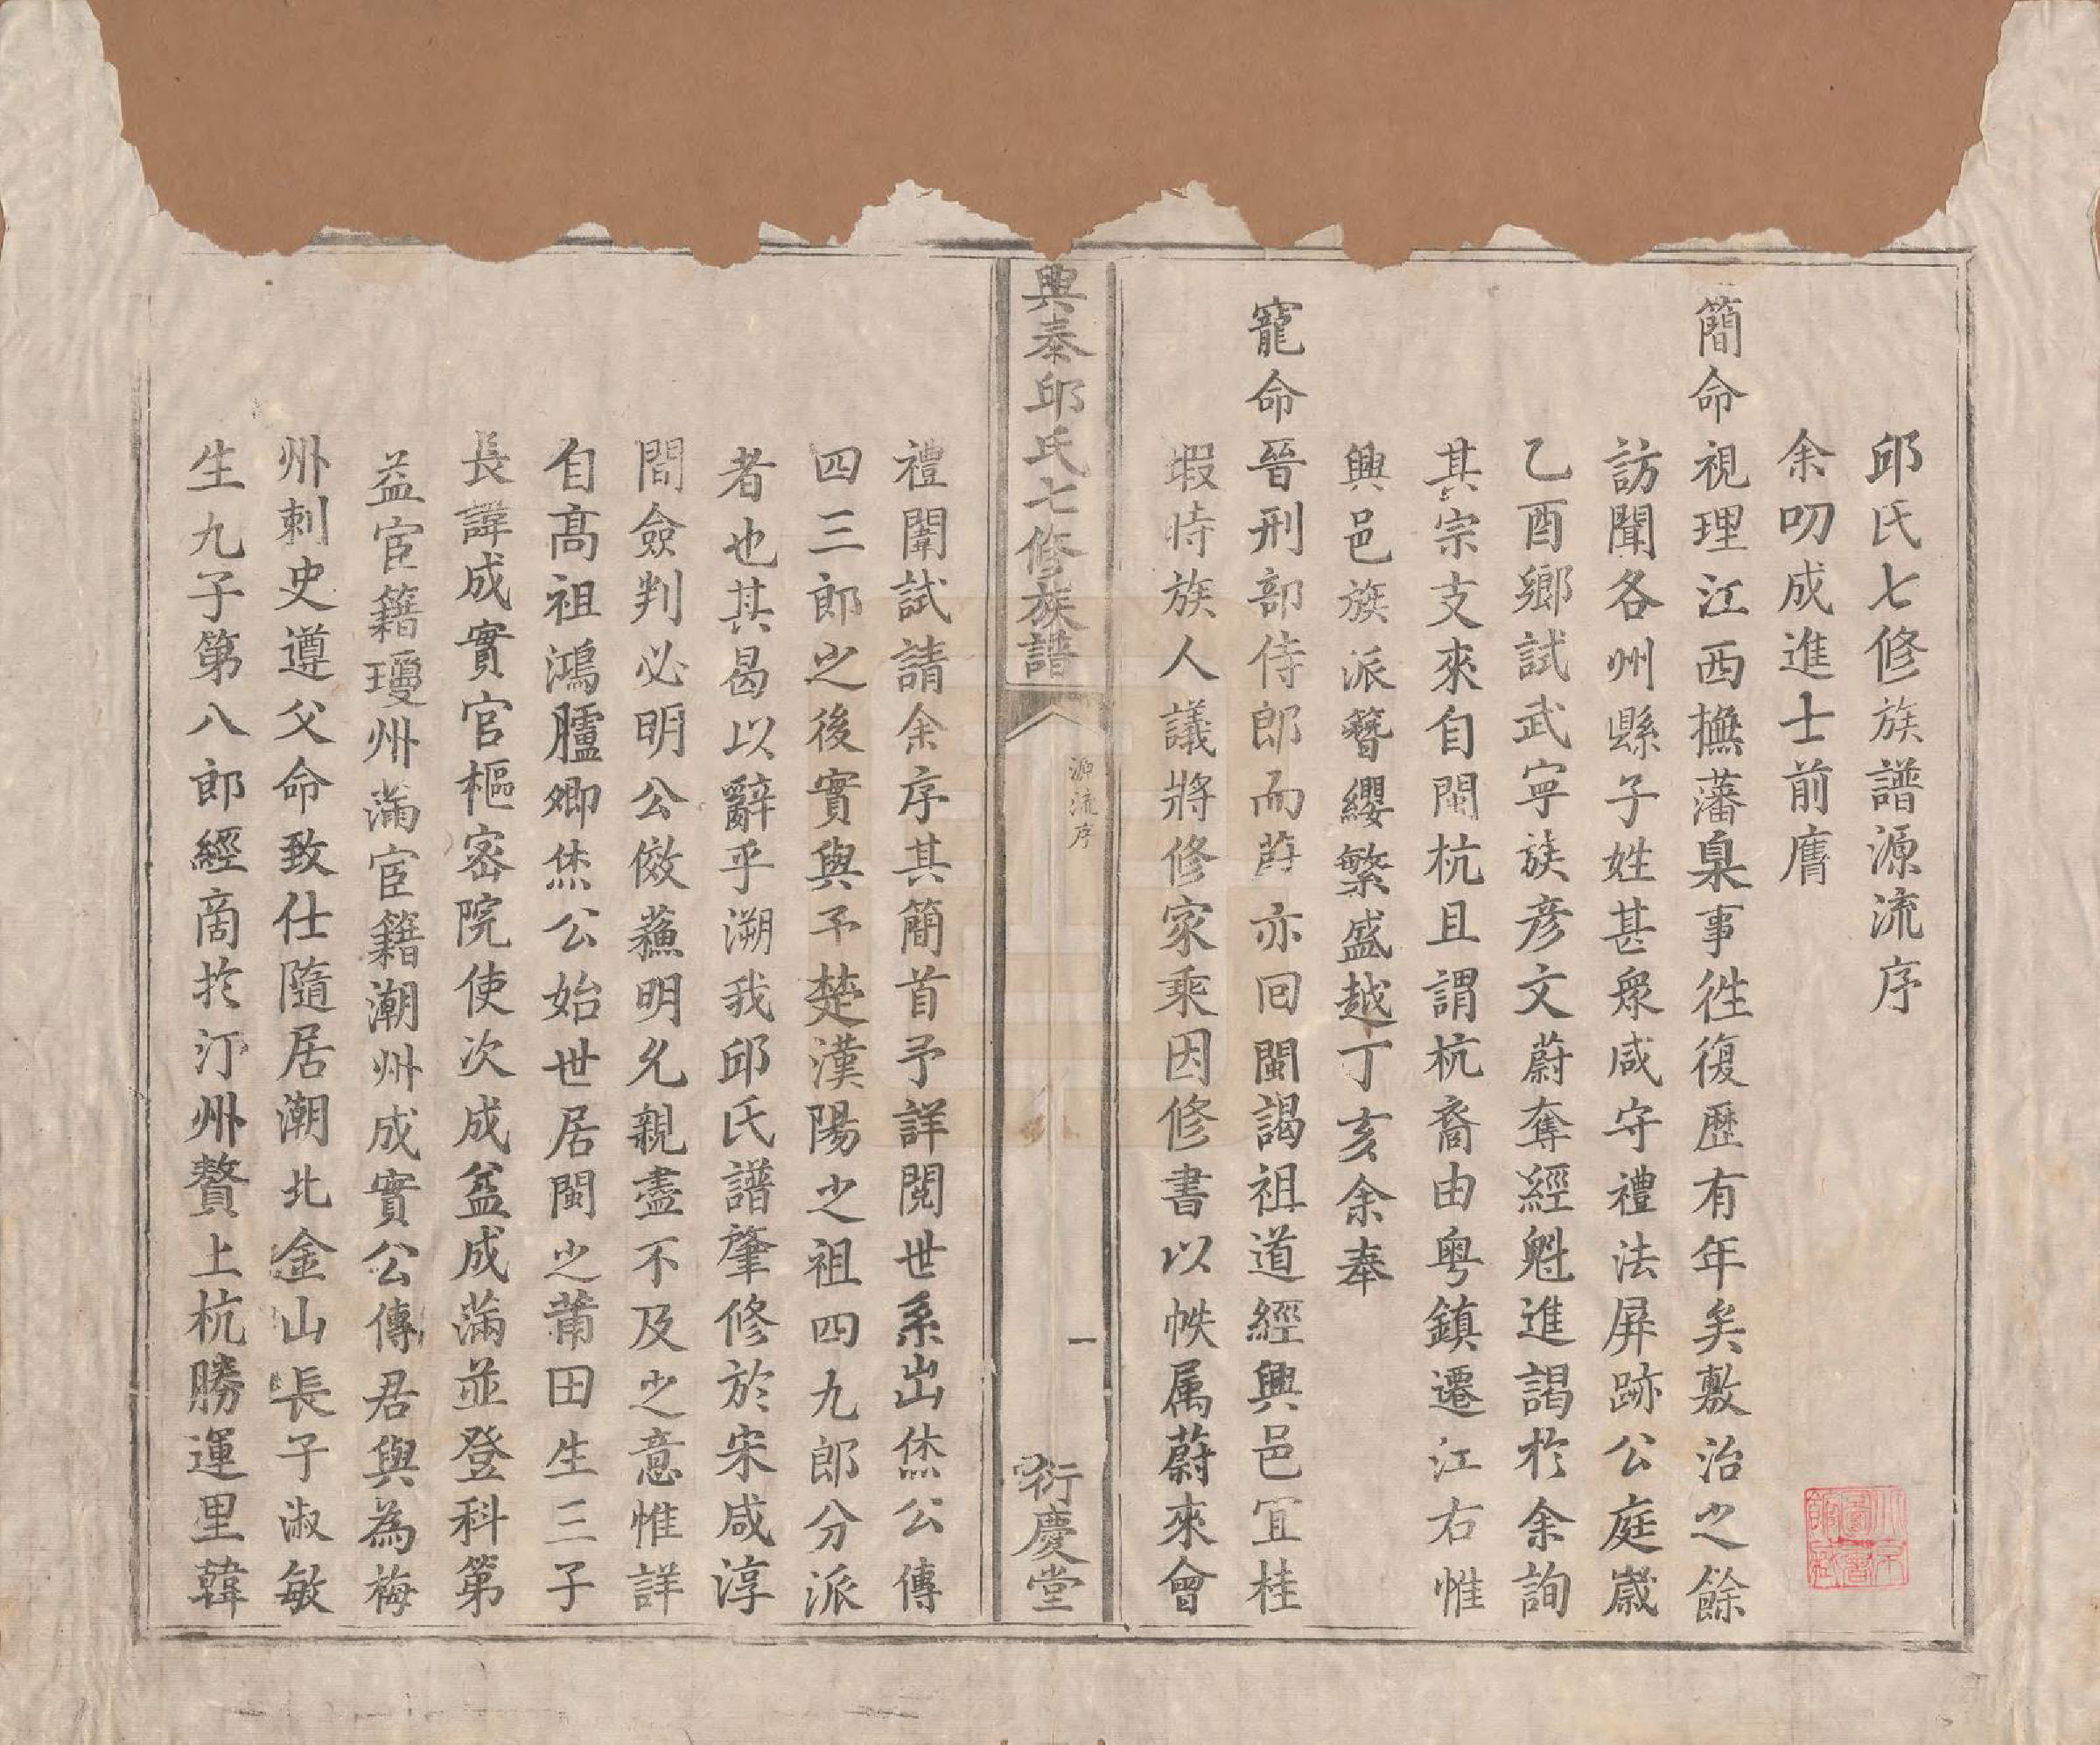 邱氏七修族譜源流序
余叨成進士前膺
簡命視理江西撫藩臬事徃復歷有年矣敷治之餘
訪聞各州縣子姓甚衆咸守禮法屏跡公庭歲
乙酉鄉試武寧族彥文蔚奪經魁進謁於余詢
其宗支來自閩杭且謂杭裔由粤鎮遷江右惟
興邑族派簪纓繁盛越丁亥余奉
寵命晉刑部侍郎而蔚亦回閩謁祖道經興邑宜桂
嘏時族人議將修家乘因修書以帙属蔚來會
興泰邱氏七修族譜
源流序
一
衍慶堂
禮闈試請余序其簡首予詳閱世系出烋公傳
四三郎之後實與予楚漢陽之祖四九郎分派
者也其曷以辭乎溯我邱氏譜肇修於宋咸淳
間僉判必明公倣蘓明允親盡不及之意惟詳
自髙祖鴻臚卿烋公始世居閩之莆田生三子
長諱成實官樞宻院使次成益成滿並登科第
益宦籍瓊州滿宦籍潮州成實公傳君與為梅
州刺史遵父命致仕隨居潮北金山長子淑敏
生九子第八郎經啇扵汀州贅上杭勝運里韓